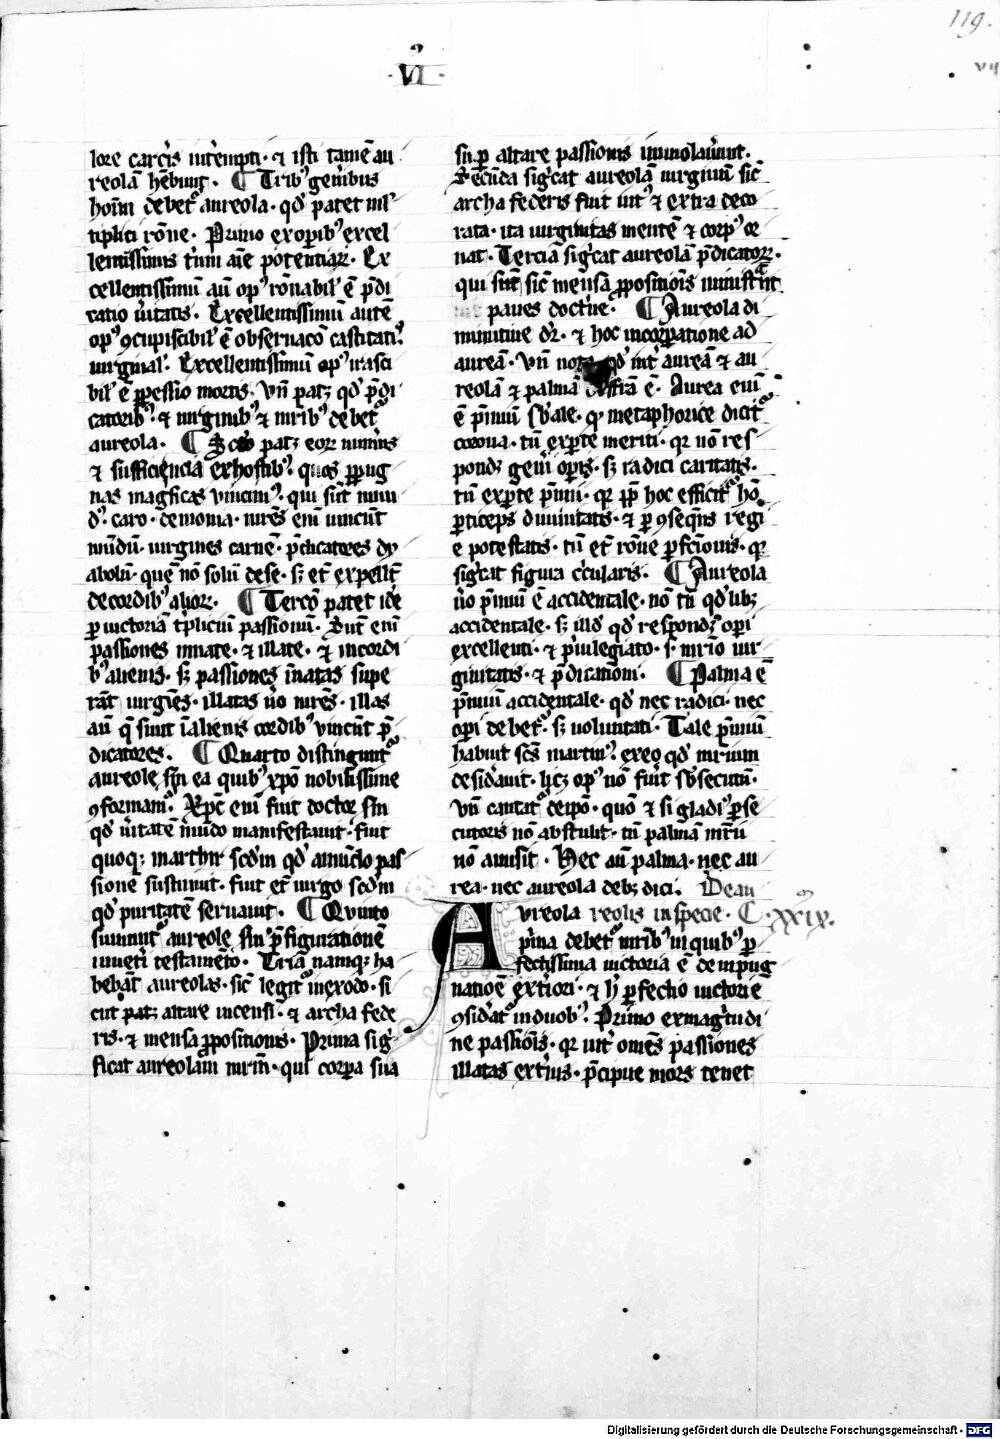 119.
·VI·
lore carc̄is int̄empti· ⁊ isti tamē au
reolā hēbunt· ¶ Trib᷒ gen̄ibus
hoīm debet᷑ aureola· qđ patet ml̓
tiplici rōne· Primo ex oꝑib᷒ excel
lentissimis t̓um aīe potentiaꝝ· Ex
cellentissimū aū op᷒ rōnabil̓ ē p̄di
catio u̓itatis· Excellentissimū autē
op᷒ ꝯcupiscibil̓ ē obseruac̄o castitatis
uirginal̓· Excellentissimū op᷒ irasci
bil̓ ē ꝑpessio mortis· Vn̄ patꝫ qđ p̄di
catorib᷒· ⁊ uirginib᷒ ⁊ mr̄ib᷒ debet᷑
aureola· ¶ Scd̄o patꝫ eoꝝ num̄us
⁊ sufficiencia ex hostib᷒· quos ꝓpug
nās magficas uincim᷒· qui sūt mun
d᷒· caro· demonia· mr̄es enī uincūt
mūdū· uirgines carnē· p̄dicatores dy
abolū· quē nō solū de se· sꝫ et̄ expellūt
de cordib᷒ alioꝝ· ¶ Terc̄o patet idē
ꝑ uictoriā tp̄licium passionū· Sūt enī
passiones innate· ⁊ illate· ⁊ in cordi
b᷒ alienis· sꝫ passiones īnatas supe
rāt uirgīes· illatas u̓o mr̄es· illas
aū q̄ sunt ī alienis cordib᷒ vincūt p̄
dicatores· ¶ Quarto distingunt᷑
aureole sn̄ ea quib᷒ xp̄o nobilissime
ꝯformam᷑· Xp̄c enī fuit doctor sn̄
qđ u̓itatē mūdo manifestauit· fuit
quoqꝫ martyr scd̄m qđ amūclo pas
sionē sustinuit· fuit et̄ uirgo scd̄m
qđ puritatē seruauit· ¶ Quinto
sumunt᷑ aureole sn̄ p̄figurationē
uiueti testamēto· Triā namqꝫ ha
bebāt aureolas· sic̄ legit᷑ in exodo· si
cut patꝫ altare incensi· ⁊ archa fede
ris· ⁊ mensa ꝓpositionis· Prima sig̓
ficat aureolam mr̄m· qui corꝑa sua
sn̄ ꝑ altare passionis immolau̓unt·
Secūda sig̓cat aureolā uirginū sic̄
archa federis fuit int᷒ ⁊ extra deco
rata· ita uirginitas mentē ⁊ corp᷒ or
nat· Terciā sig̓cat aureolā p̄dicatoꝝ·
qui sūt sic̄ mensa ꝓpositiōis ministrāt
panes doctrine· ¶ Aureola di
minutiue dr̄· ⁊ hoc incorꝑatione ad
aureā· Vn̄ nota qđ int̓ aureā ⁊ au
reolā ⁊ palmā differētiā ē· Aurea enī
ē p̄miū sb̄ale· qđ metaphorice dicit᷑
corona· tū ex ꝑte meriti· qr̄ nō res
pondꝫ gen̄i oꝑis· sꝫ radici caritatis·
tū ex ꝑte p̄mii· qr̄ ꝓp̄ hoc efficit᷑ hō
ꝑticeps diuinitatis· ⁊ ꝑ ꝯseq̄ns regi
e potestatis· tū et̄ rōne ꝑfc̄ionis· qr̄
sig̓cat figura circularis· ¶ Aureola
u̓o p̄miū ē accidentale· nō tn̄ qđlibꝫ
accidentale· sꝫ illđ qđ respondꝫ oꝑi
excellenti· ⁊ p̓uilegiato· s· mr̄io uir
ginitatis· ⁊ p̄dicationi· ¶ Palma ē
p̄miū accidentale· qđ nec radici· nec
oꝑi debet᷑· sꝫ uoluntati· Tale p̄miū
habuit sc̄s martin᷒· ex eo qđ mr̄ium
desid̓auit· licꝫ op᷒ nō fuit sb̄secutū·
Vn̄ cantat᷑ de ip̄o· quō ⁊ si gladi᷒ ꝑse
cutoris nō abstulit· tn̄ palmā mr̄ii
nō amisit· Hec aū palma· nec au
rea· nec aureola debꝫ dici· De au
Avreola reolis in specie· C· xxix·
ap̄ma debet᷑ mr̄ib᷒ in quib᷒ ꝑ
fectissima uictoria ē de inpug
natiōe ext̓iori· ⁊ h̄ ꝑfectio uictorie
ꝯsid̓at᷑ in duob᷒· Primo ex magtudi
ne passiōis· qr̄ int̓ om̄es passiones
illatas ext̓ius· p̄cipue mors tenet
Digitalisierung gefördert durch die Deutsche Forschungsgemeinschaft · DFG